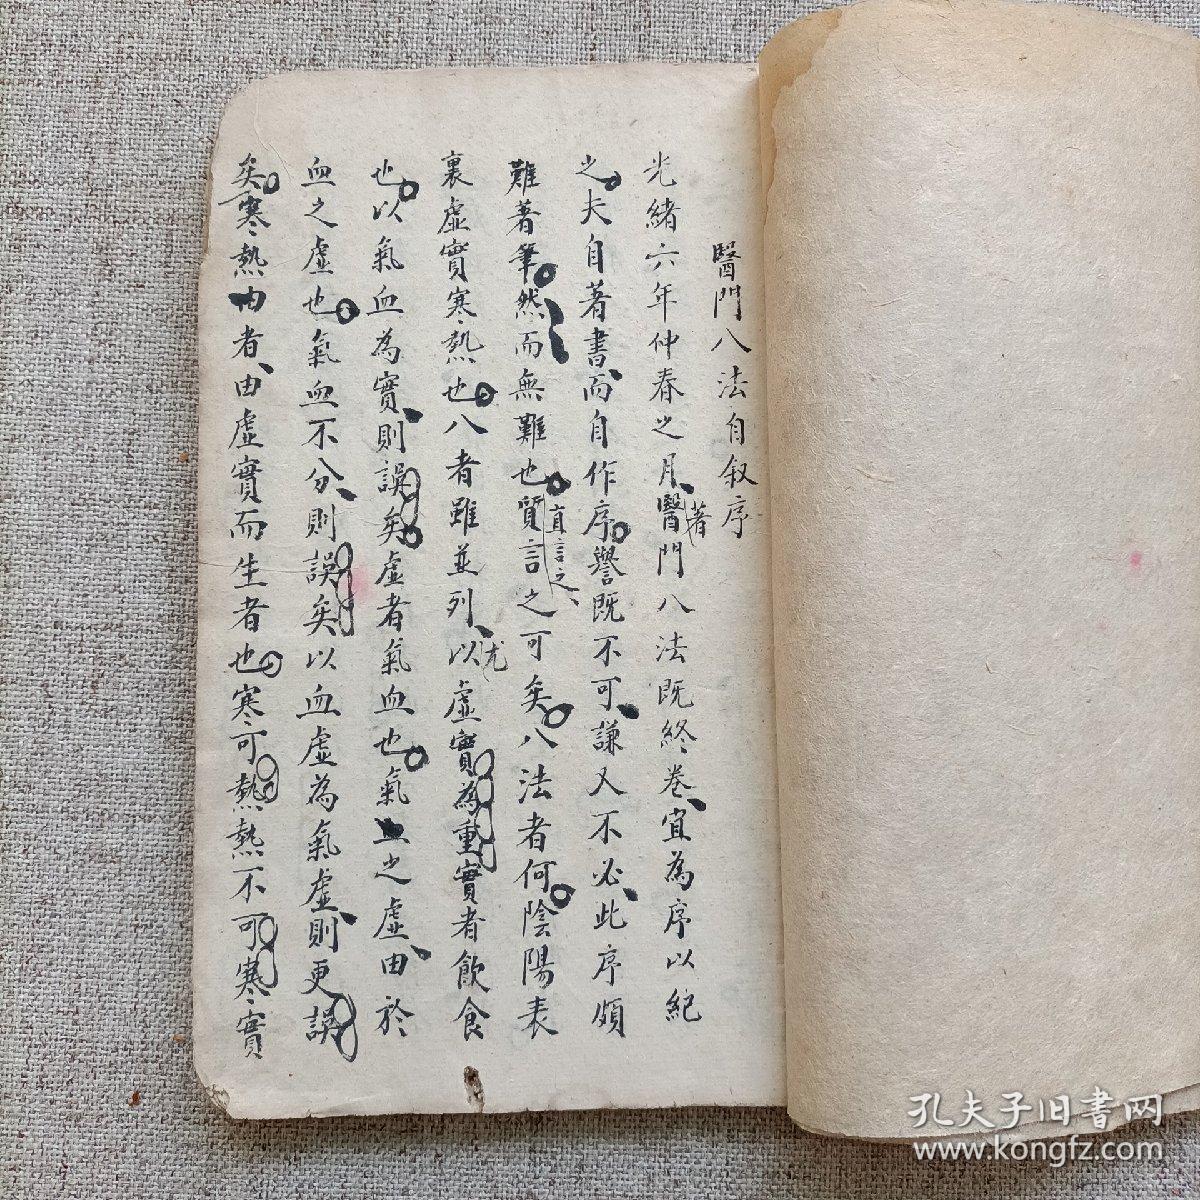 醫門八法自叙序
光緒六年仲春之月著醫門八法既終卷宜為序以紀
之夫自著書而自作序譽既不可謙又不必此序頗
難著筆然而無難也質言之直言之可矣八法者何陰陽表
裏虛實寒熱也八者雖並列尤以虛實為重實者飲食
也以氣血為實則誤矣虛者氣血也氣血之虛由於
血之虛也氣血不分則誤矣以血虛為氣虛則更誤
矣寒熱由者由虛實而生者也寒可熱熱不可寒實
孔夫子旧书网
www.kongfz.com